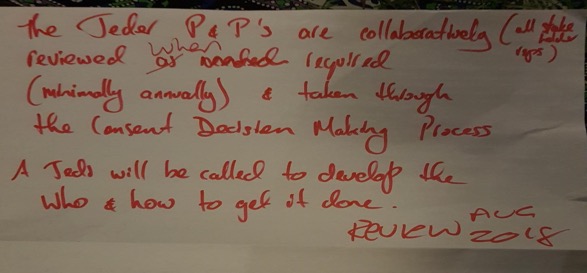 The Jeder P & P's are collaboratively (all stake holder reps)
reviewed when required
(minimally annually) & taken through
the Consent Decision Making Process
A Jedi will be called to develop the
who & how to get it done.
REVIEW AUG 2018